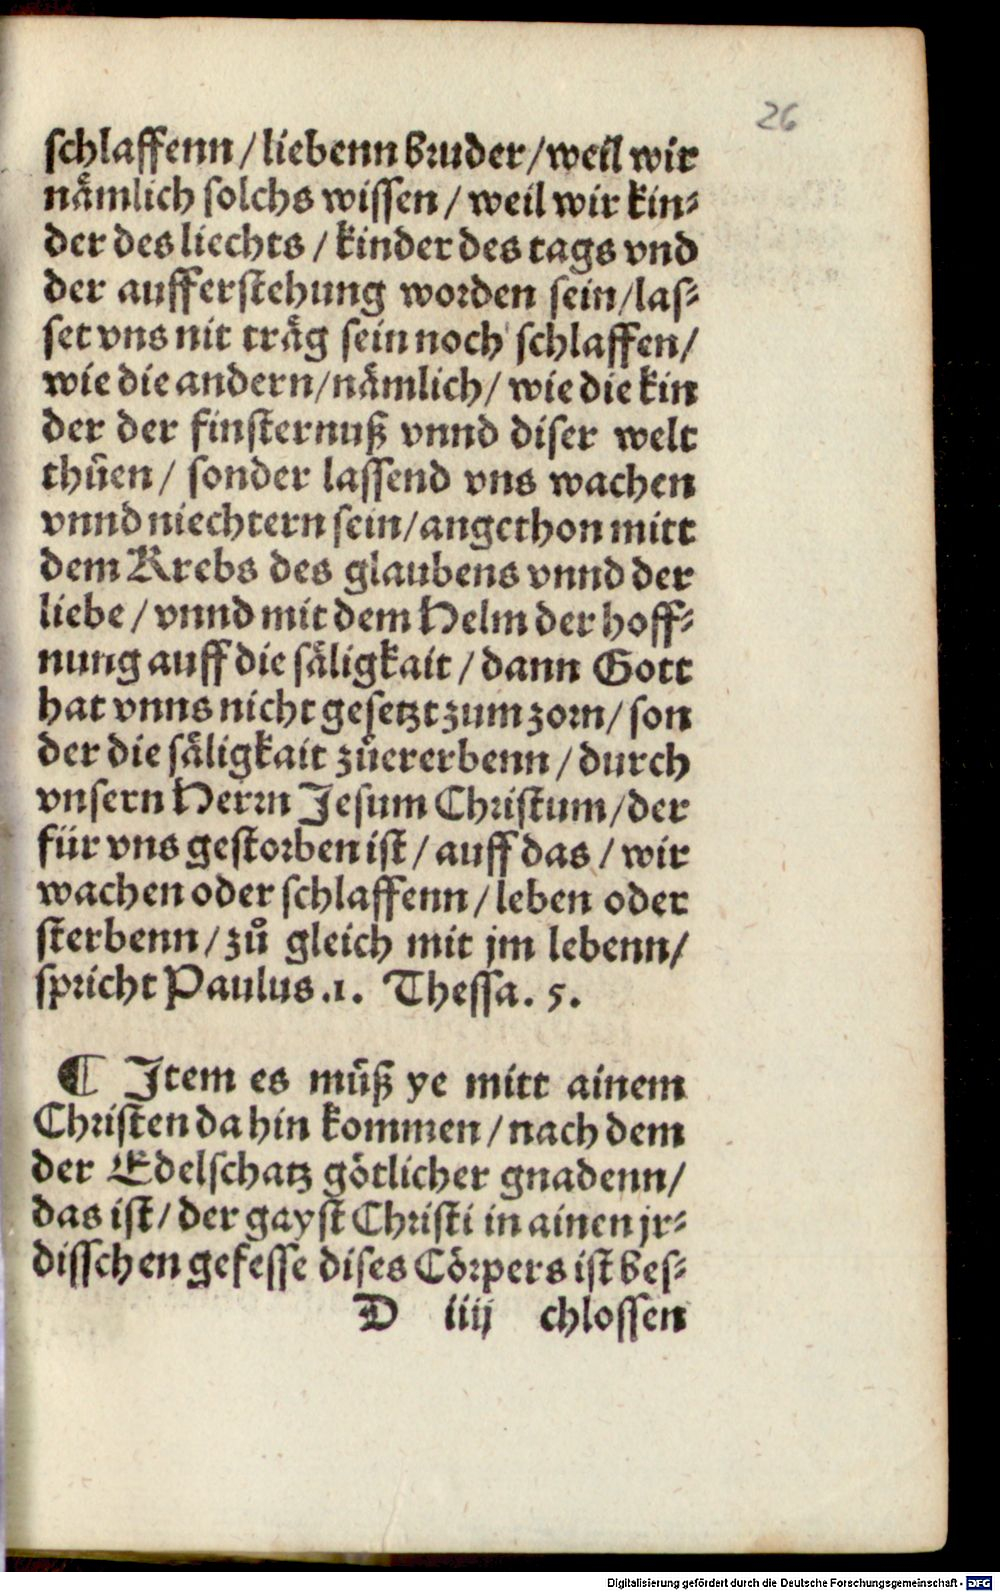 26
schlaffenn / liebenn bruder / weil wir
nämlich solchs wissen / weil wir kin⸗
der des liechts / kinder des tags vnd
der aufferstehung worden sein / las⸗
set vns nit träg sein noch schlaffen /
wie die andern / nämlich / wie die kin
der der finsternuß vnnd diser welt
thuͤen / sonder lassend vns wachen
vnnd niechtern sein / angethon mitt
dem Krebs des glaubens vnnd der
liebe / vnnd mit dem Helm der hoff⸗
nung auff die säligkait / dann Gott
hat vnns nicht gesetzt zum zorn / son
der die säligkait zuͤererbenn / durch
vnsern Herrn Jesum Christum / der
für vns gestorben ist / auff das / wir
wachen oder schlaffenn / leben oder
sterbenn / zuͦ gleich mit jm lebenn /
spricht Paulus .1. Thessa. 5.
¶ Jtem es muͤß ye mitt ainem
Christen da hin kommen / nach dem
der Edelschatz götlicher gnadenn /
das ist / der gayst Christi in ainen jr⸗
disschen gefesse dises Cörpers ist bes⸗
D iiij chlossen
Digitalisierung gefördert durch die Deutsche Forschungsgemeinschaft - DFG